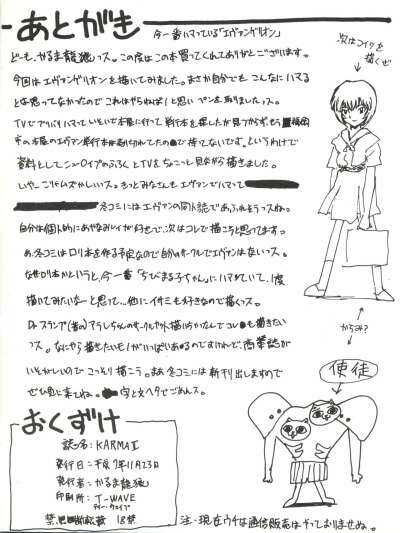 あとがき
今一番ハマっている「エヴァンゲリオン」
どーも、かるま龍狼っス。この度はこの本買ってくれてありがとございます。
今回はエヴァンゲリオンを描いてみました。まさか自分でも こんなにハマる
とは思ってなかったので これはやらねば!と思い ペンを取りましたっス。
TVで
本屋に行って 単行本を探したが 見つからず
市の本屋のエヴァン単行本は売り切れてた
持ってないです。というわけで
資料としてニュータイプのふろくとTVをちょこっと見ながら描きました。
いやーこりゃムズかしいっス。きっとみなさんもエヴァンでハマって
冬コミにはエヴァンの同人誌であふれそうっスね。
自分は個人的にあやなみレイが好きで、次はコレで描こうと思ってます。
あ、冬コミはロリ本を作る予定なので自分のサークルでエヴァンはないっス。
なぜロリ本かというと、今一番「ちびまる子ちゃん」にハマっていて、1度
描いてみたいなーと思って…他にイサミも好きなので描くっス。
Dr.スランプ
アラレちゃん
も描きたい
っス。なにやら描きたいモノがいっぱいあるのですけれど、商業誌が
いそがしいので こっそり描こう。
冬コミには新刊出しますので
ぜひ見に来てね。
字と文ヘタでごめんス。
次はコイツを
描くぜ
からみ?
使徒
おくずけ
誌名:KARMAⅡ
発行日:平成7年11月23日
発行者:かるま龍狼
印刷所:T-WAVE
ティー・ウェイブ
禁
転載 18禁
注・現在ウチは通信販売はやっておりませぬ。